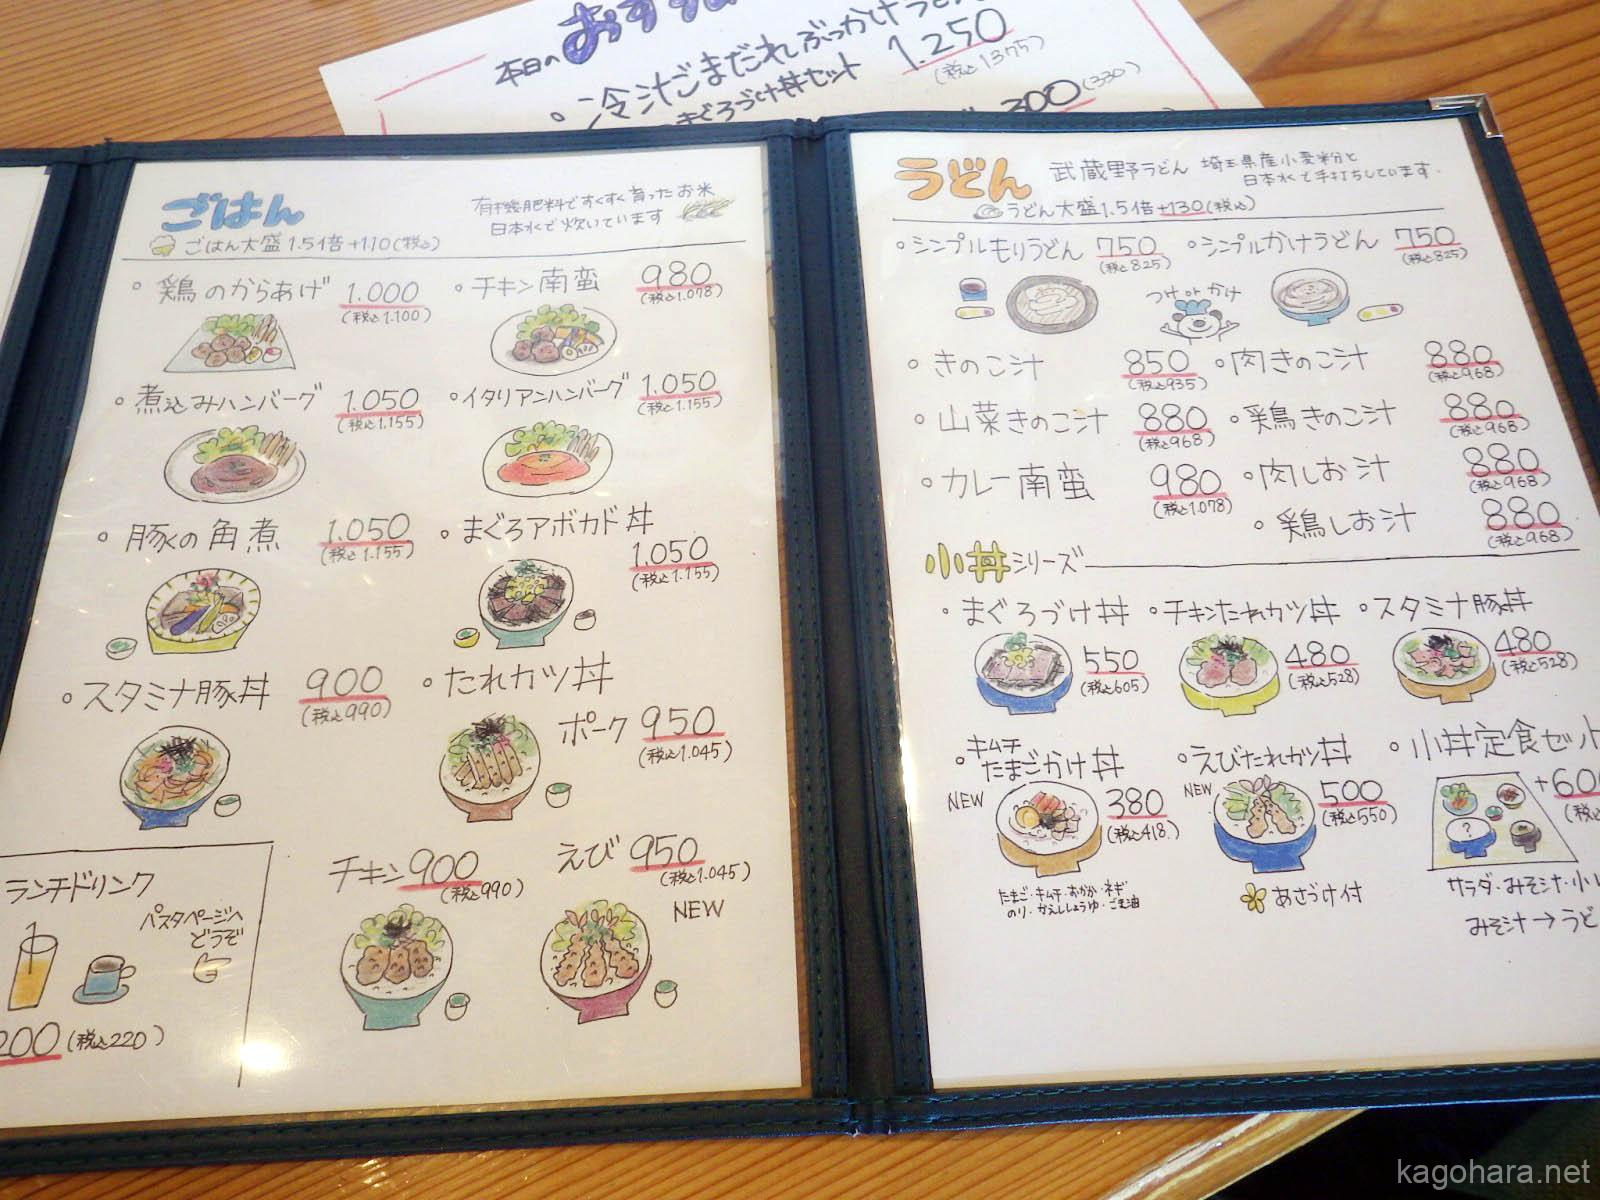 本日の おすすめ
・冷汁ごまだれぶっかけうどん
まぐろづけ丼セット 1.250
(税込1375)
300(330)
ごはん
有機肥料ですくすく育ったお米
日本水で炊いています
ごはん大盛1.5倍+110(税込)
・鶏のからあげ 1.000
(税込1.100)
・チキン南蛮 980
(税込1.078)
・煮込みハンバーグ 1.050
(税込1.155)
・イタリアンハンバーグ 1.050
(税込1.155)
・豚の角煮 1.050
(税込1.155)
・まぐろアボカド丼
1.050
(税込1.155)
・スタミナ豚丼 900
(税込990)
・たれカツ丼
ポーク 950
(税込1.045)
チキン 900
(税込990)
えび 950
(税込1.045)
NEW
ランチドリンク
パスタページへ
どうぞ
200(税込220)
うどん
武蔵野うどん 埼玉県産小麦粉と
日本水で手打ちしています.
うどん大盛1.5倍+130(税込)
・シンプルもりうどん 750
(税込825)
・シンプルかけうどん 750
(税込825)
つけorかけ
・きのこ汁 850
(税込935)
・肉きのこ汁 880
(税込968)
・山菜きのこ汁 880
(税込968)
・鶏きのこ汁 880
(税込968)
・カレー南蛮 980
(税込1.078)
・肉しお汁 880
(税込968)
・鶏しお汁 880
(税込968)
小丼シリーズ
・まぐろづけ丼
550
(税込605)
・チキンたれカツ丼
480
(税込528)
・スタミナ豚丼
480
(税込528)
・キムチ
たまごかけ丼
NEW
380
(税込418.)
たまご・キムチ・おかか・ネギ
のり・かえししょうゆ・ごま油
・えびたれカツ丼
NEW
500
(税込550)
あさづけ付
・小丼定食セット
+600
(税込
?
サラダ・みそ汁・小
みそ汁→うど
kagohara.net